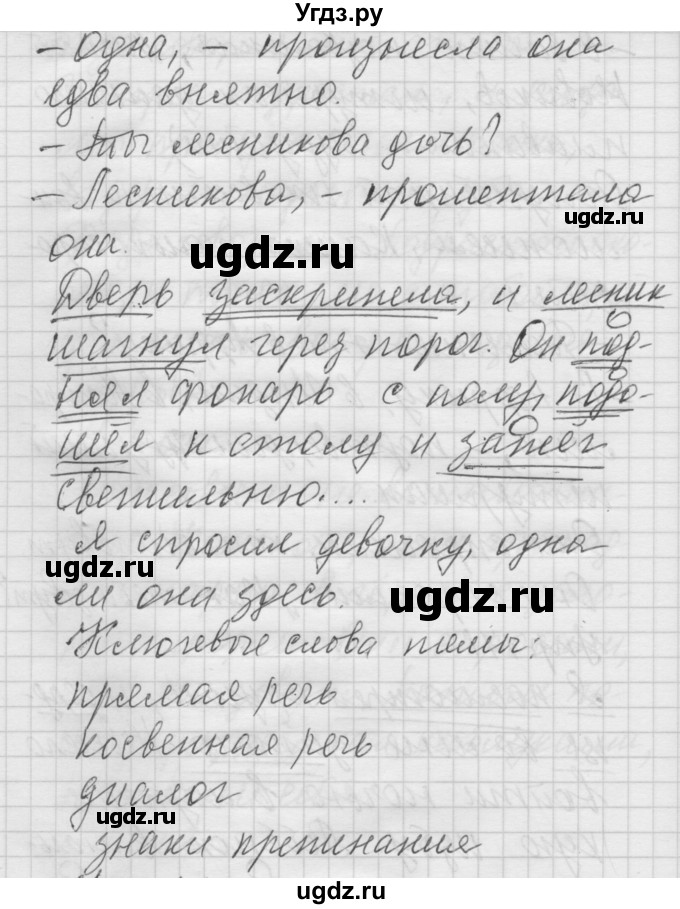 Угдз.ру
– Одна, – произнесла она
едва внятно.
– Ты лесникова дочь?
– Лесникова, – прошептала
она.
ugdz.ru
ugdz.ru
Дверь заскрипела, и лесник
шагнул через порог. Он под-
нял фонарь с полу, подо-
шёл к столу и зажёг
светильню....
Я спросил девочку, одна
ли она здесь.
ugdz.ru
ugdz.ru
Ключевые слова темы:
прямая речь
косвенная речь
диалог
ugdz.ru
знаки препинания
ugdz.ru